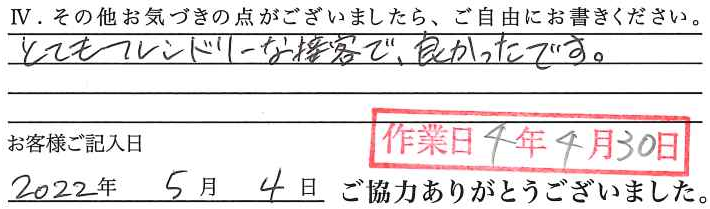 Ⅳ．その他お気づきの点がございましたら、ご自由にお書きください。
とてもフレンドリーな接客で、良かったです。
お客様ご記入日
作業日 4年 4月30日
2022年 5月 4日 ご協力ありがとうございました。